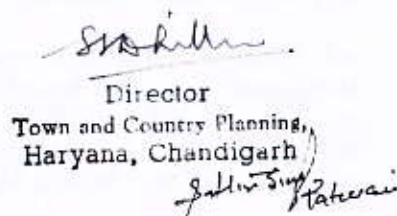 Director
Town and Country Planning,
Haryana, Chandigarh
Patwari